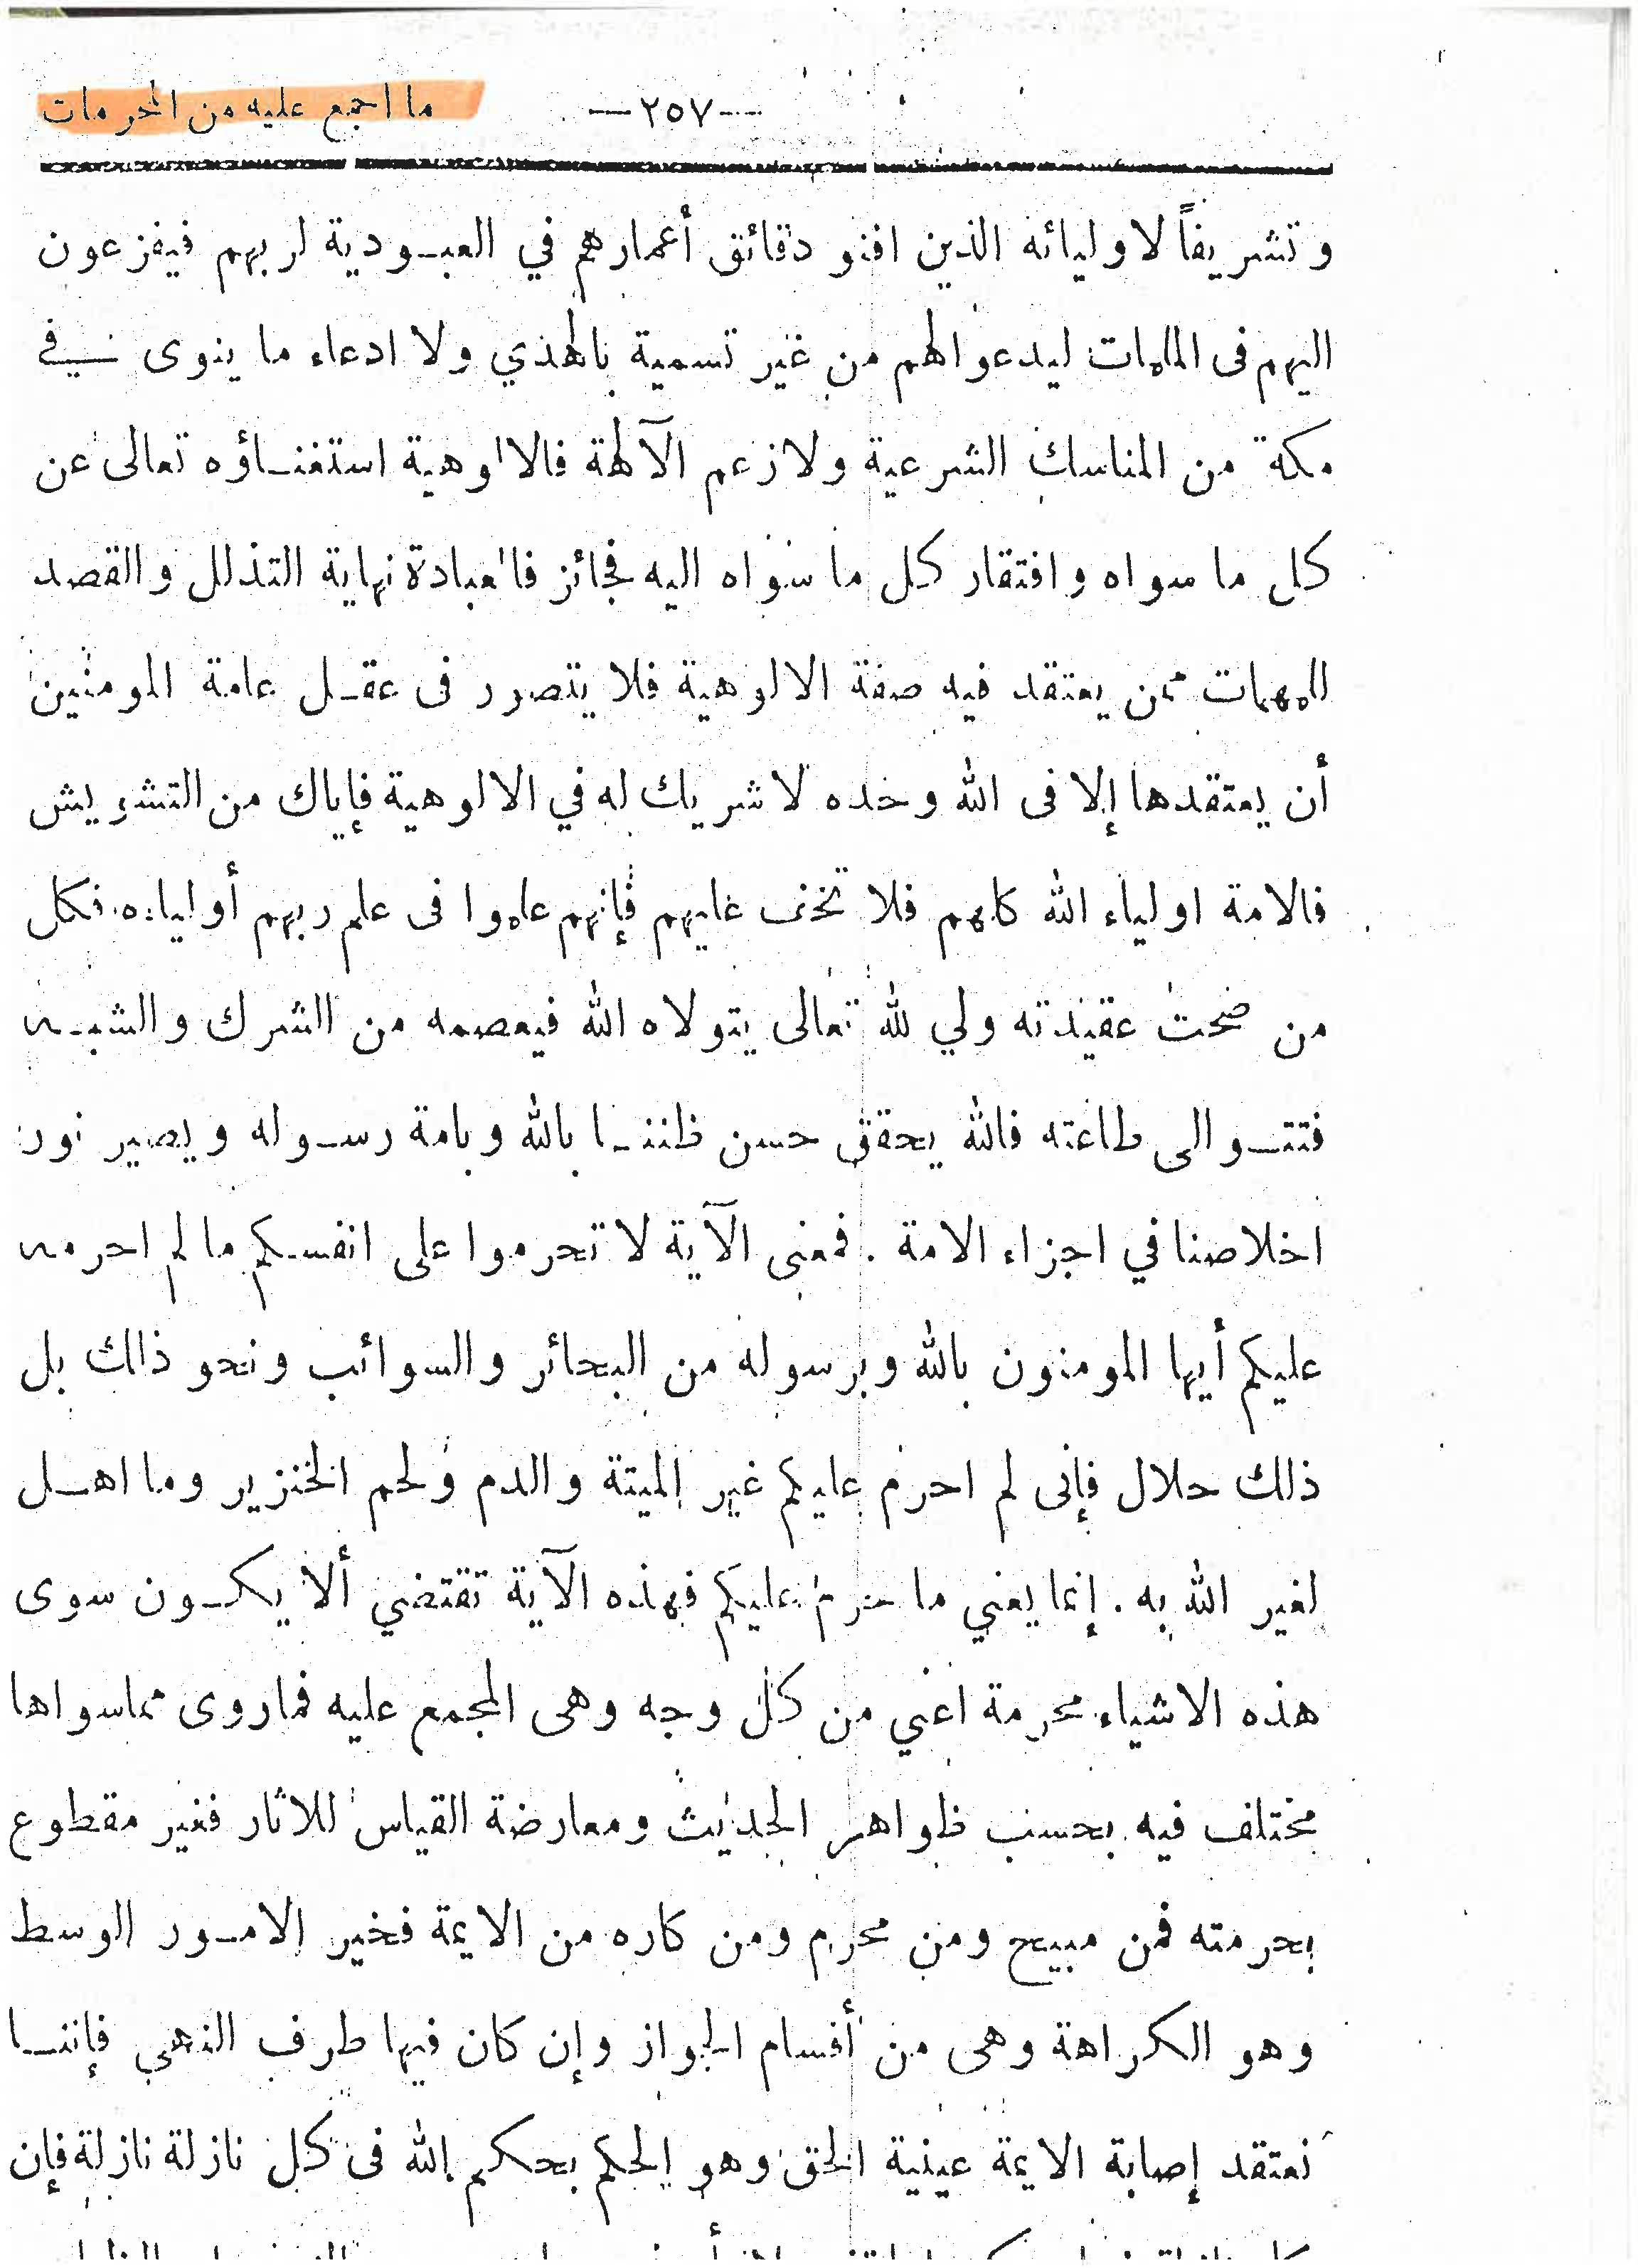 ما اجمع عليه من المحرمات
—٢٥٧—
وتشريفاً لاوليائه الذين افنو دقائق أعمارهم في العبودية لربهم فيفزعون
اليهم فى الملمات ليدعوالهم من غير تسمية بالهدي ولا ادعاء ما ينوى في
مكة من المناسك الشرعية ولا زعم الآلهة فالالوهية استغناؤه تعالى عن
كل ما سواه وافتقار كل ما سواه اليه فجائز فالعبادة نهاية التذلل والقصد
للمهمات ممن يعتقد فيه صفة الالوهية فلا يتصور فى عقل عامة المومنين
أن يعتقدها إلا فى الله وحده لا شريك له في الالوهية فإياك من التشويش
فالامة اولياء الله كلهم فلا تخف عليهم فإنهم علموا فى علم ربهم أولياءه فكل
من صحت عقيدته ولي لله تعالى يتولاه الله فيعصمه من الشرك والشبه
فتتوالى طاعته فالله يحقق حسن ظننا بالله وبامة رسوله ويصير نور
اخلاصنا في اجزاء الامة . فمعنى الآية لا تحرموا على انفسكم ما لم احرمه
عليكم أيها المومنون بالله وبرسوله من البحائر والسوائب ونحو ذالك بل
ذلك حلال فإنى لم احرم عليكم غير الميتة والدم ولحم الخنزير وما اهل
لغير الله به . إنما يعني ما حرم عليكم فهذه الآية تقتضي ألا يكون سوى
هذه الاشياء محرمة اعني من كل وجه وهى المجمع عليه فماروى مماسواها
مختلف فيه بحسب ظواهر الحديث ومعارضة القياس للاثار فغير مقطوع
بحرمته فمن مبيح ومن محرم ومن كاره من الايمة فخير الامور الوسط
وهو الكراهة وهى من أقسام الجواز وإن كان فيها طرف النهى فإننا
نعتقد إصابة الايمة عينية الحق وهو الحكم بحكم الله فى كل نازلة نازلة فإن